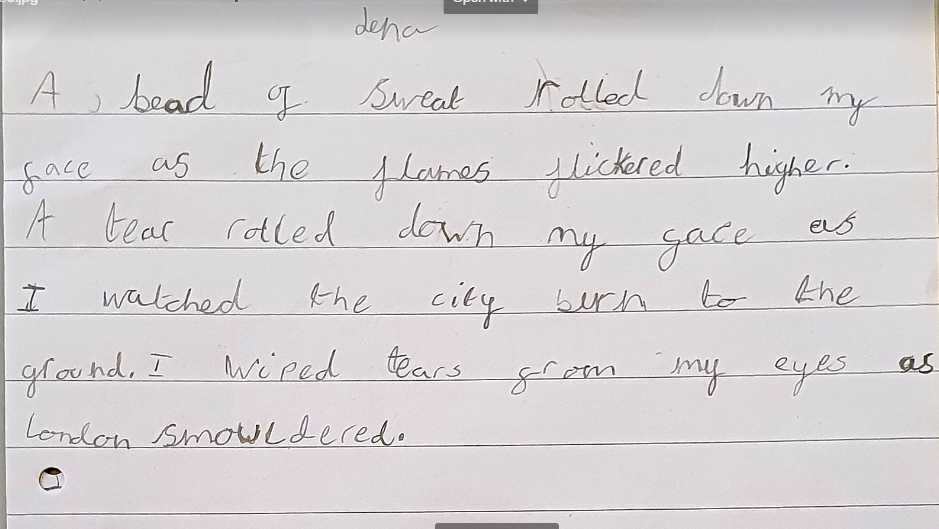 dena
A, bead of sweat rolled down my
face as the flames flickered higher.
A tear rolled down my face as
I watched the city burn to the
ground. I wiped tears from my eyes as
London smowldered.